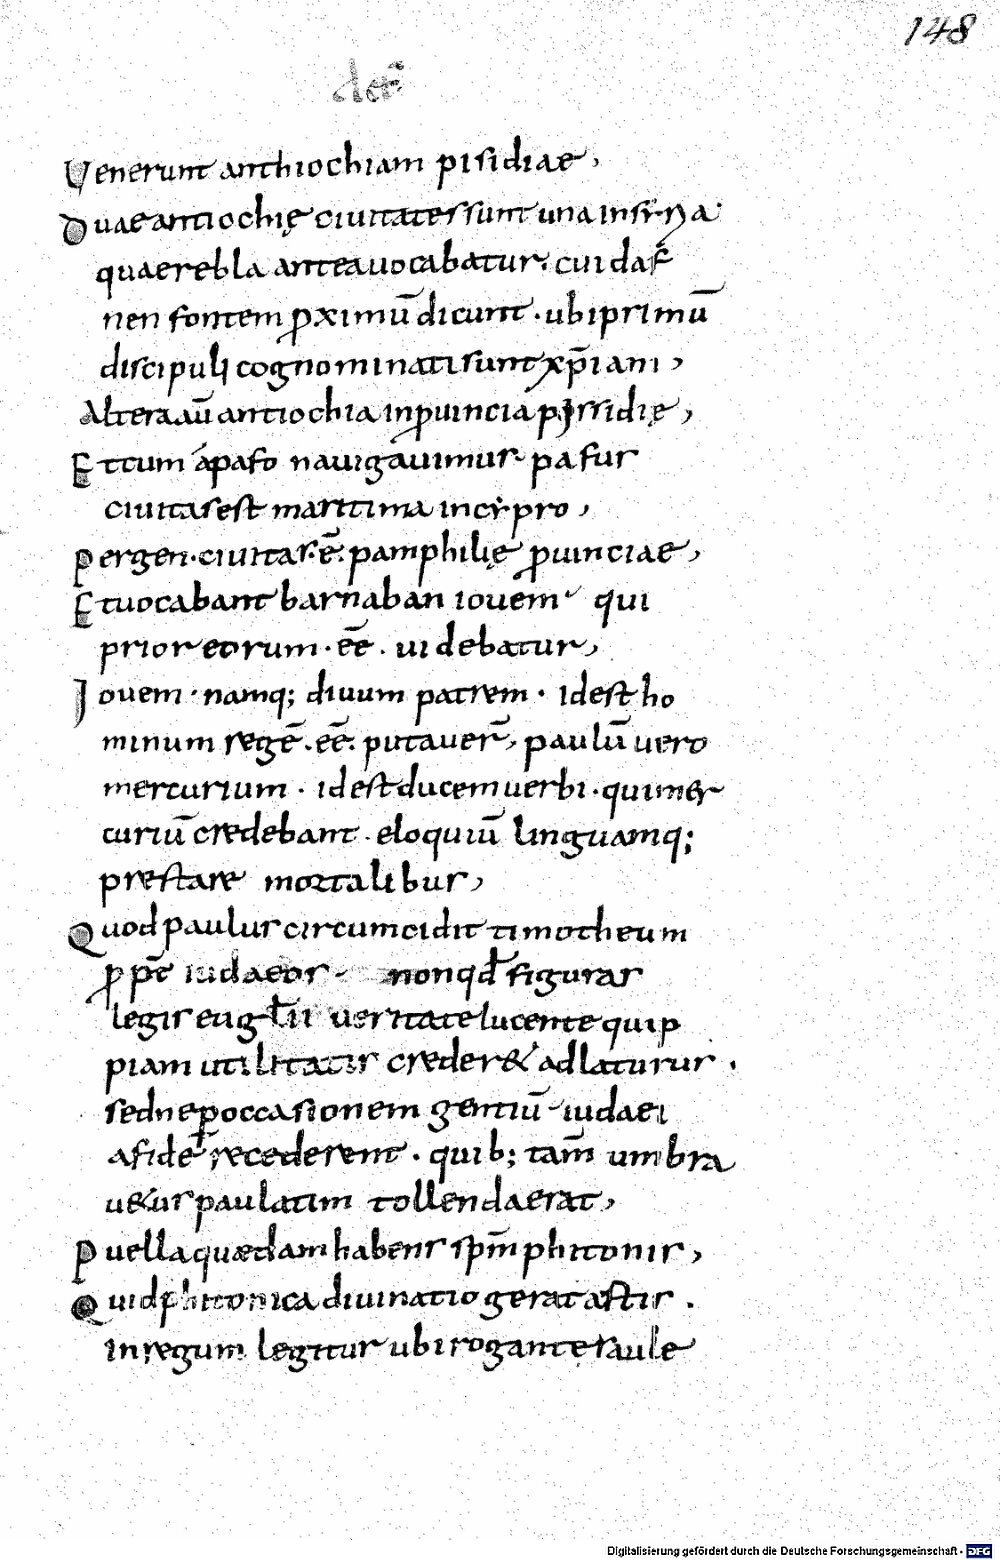 148
Uenerunt anthiochiam pisidiae,
Duae antiochię ciuitates sunt una insirya
quae rebla antea uocabatur. cui daf
nen fontem ꝓximū dicunt. ubi primū
discipuli cognominati sunt xp̄iani,
Altera aū antiochia inꝓuincia pyssidię,
Et cum apafo nauigauimus pafus
ciuitas est maritima in cypro,
Pergen. ciuitas. ē. pamphilię ꝓuinciae,
Et uocabant barnaban iouem qui
prior eorum. eē. uidebatur,
Iouem. namq; diuum patrem. idest ho
minum regē. eē. putauer̄, paulū uero
mercurium. idest ducem uerbi. qui mer
curiū credebant. eloquiū linguamq;
prestare mortalibus,
Quod paulus circumcidit timotheum
ꝓpt̄ iudaeos. non qd̄ figuras
legis eug̅lii ueritate lucente quip
piam utilitatis crederet adlaturus.
sedne ꝑ occasionem gentiū iudaei
afide recederent. quib; tam̄ umbra
uetus paulatim tollenda erat,
Puella quædam habens sp̄m phitonis,
Quid phitonica diuinatio gerat astis.
In regum legitur ubi rogante saule